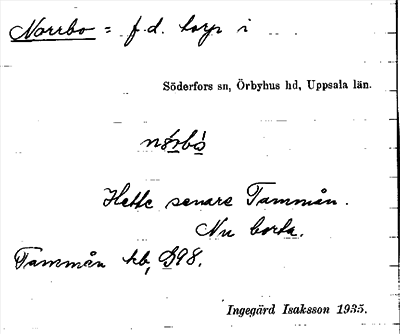 Norrbo = f.d. torp i
Söderfors sn, Örbyhus hd, Uppsala län.
nórbò
Hette senare Tammån.
Nu borta.
Tammån kb, 898.
Ingegärd Isaksson 1935.